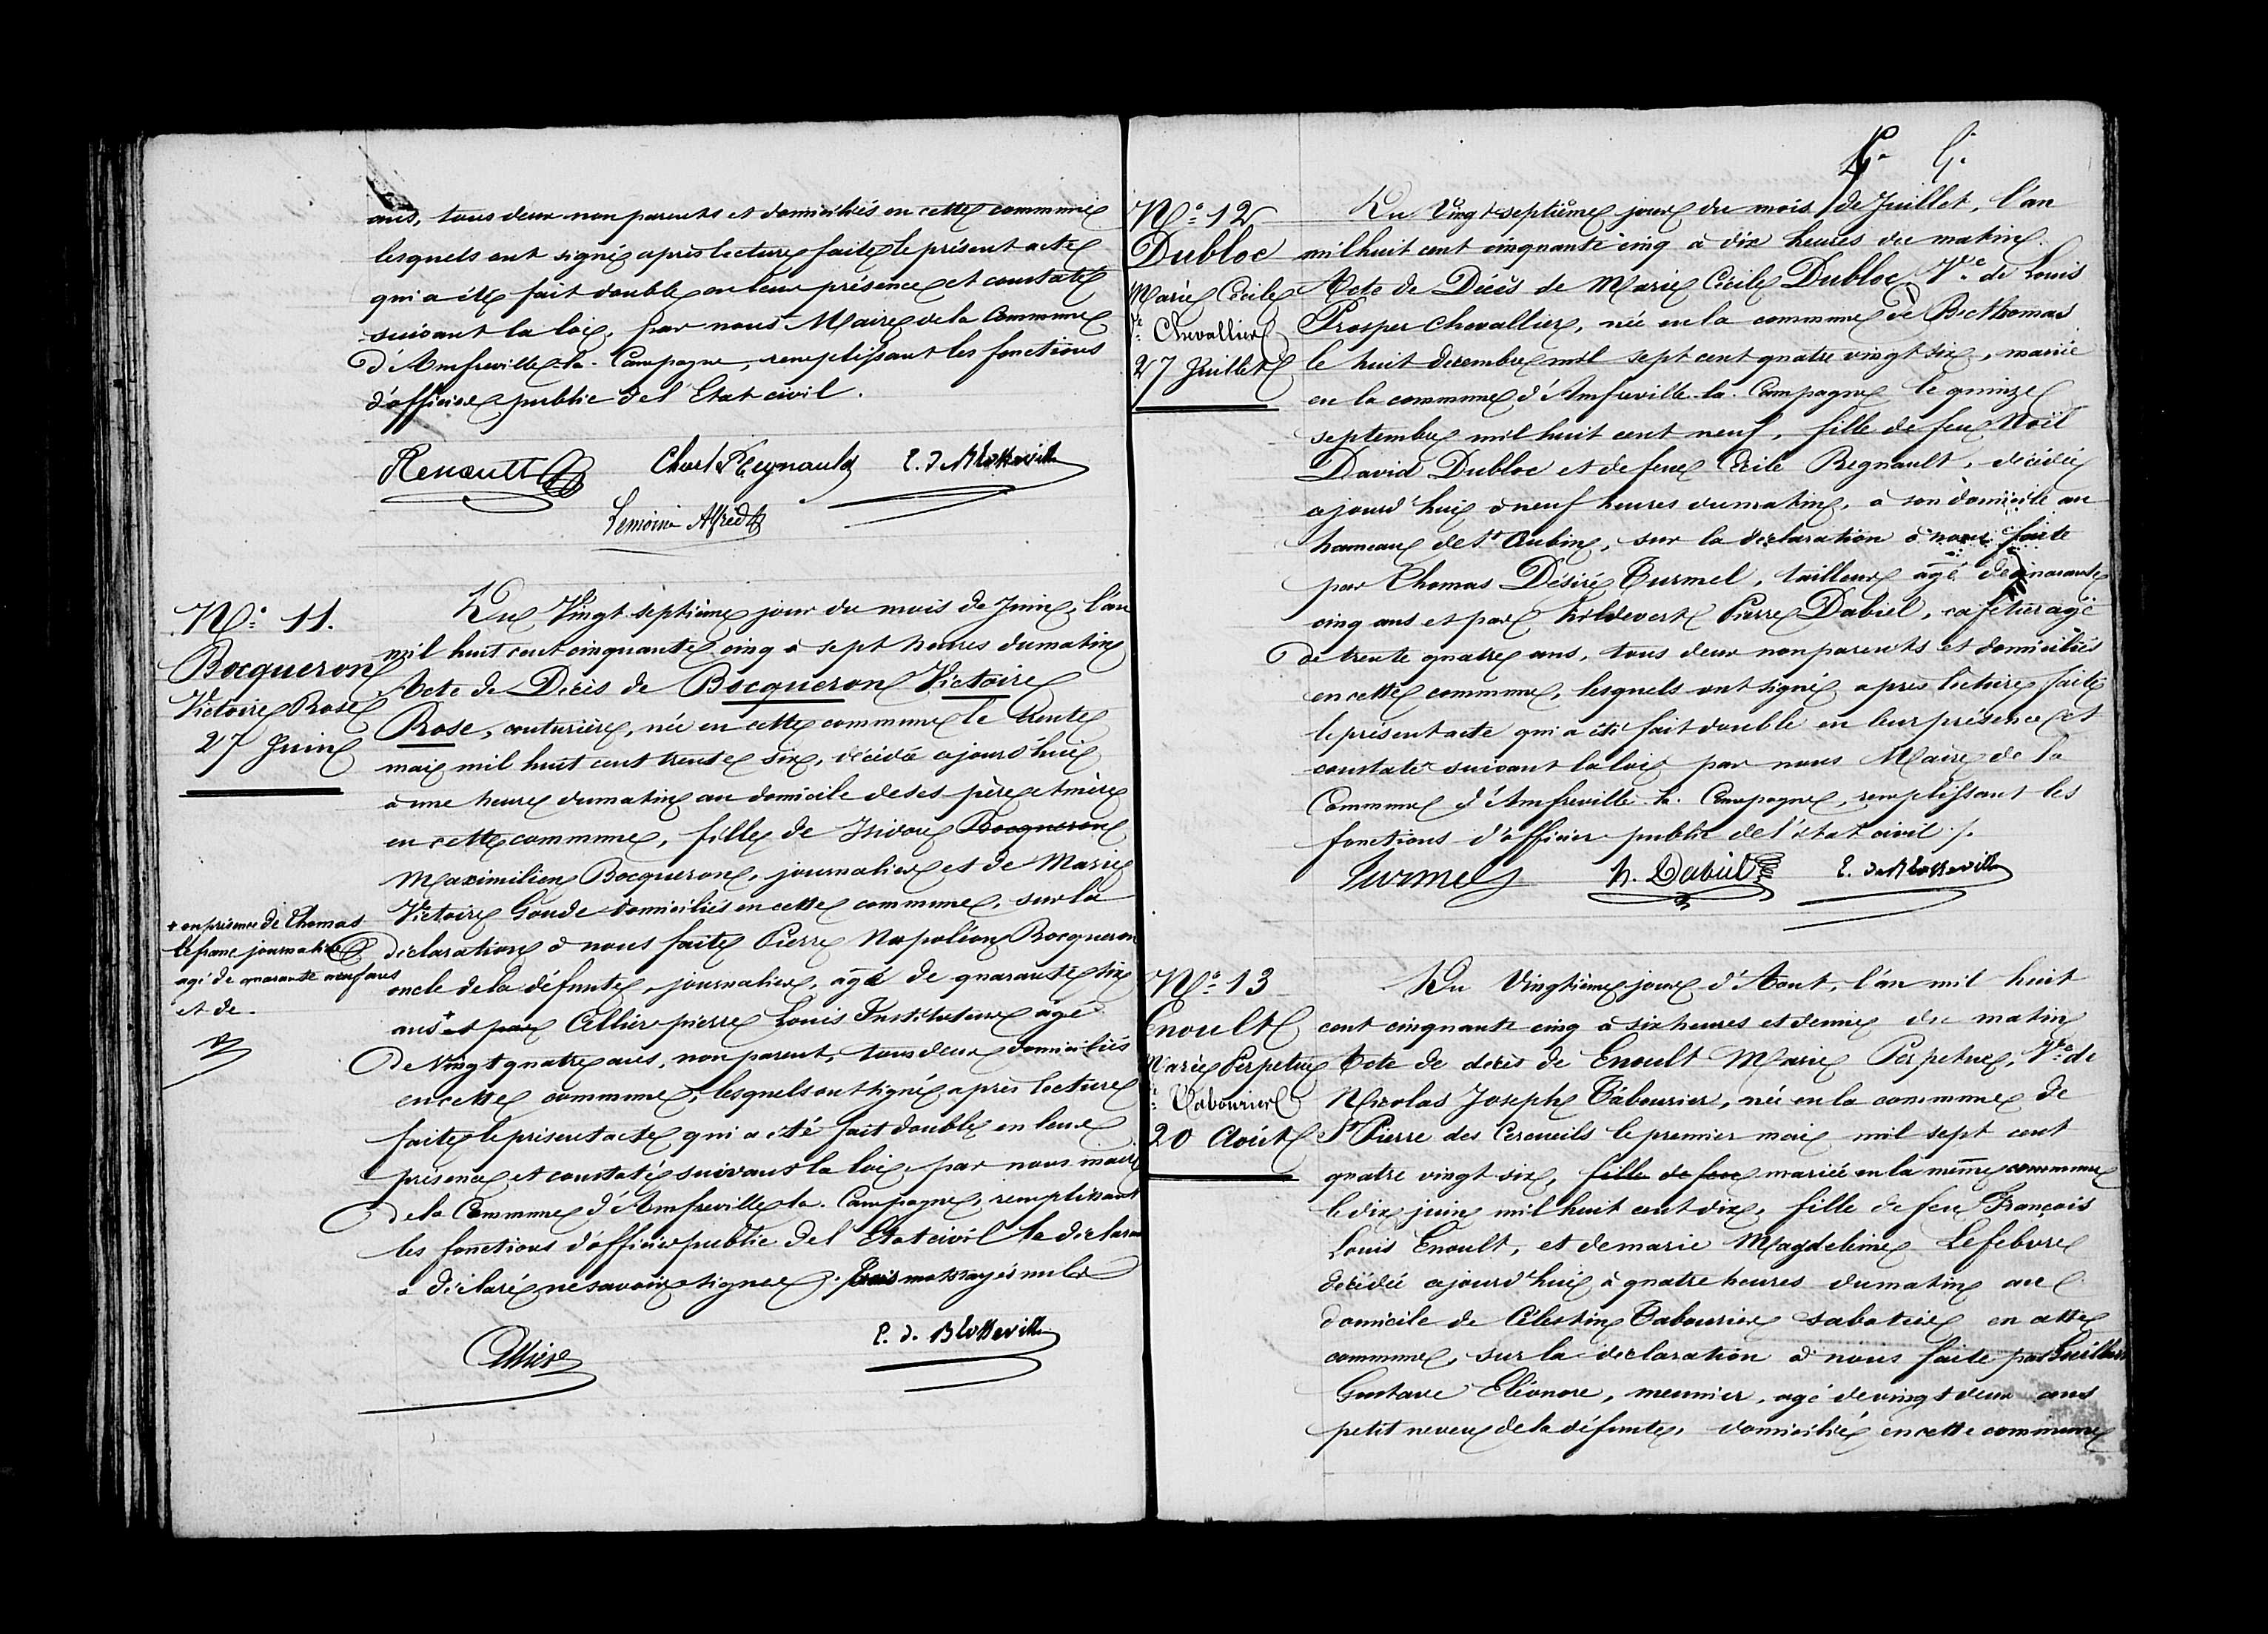 ans, tous deux non parents et domiciliés en cette commune
lesquels ont signé après lecture faite le présent acte
qui a été fait double en leur présence et constaté
suivant la loi, par nous Maire de la Commune
d'Amfreville-la-Campagne, remplissant les fonctions
d'officier public de l'Etat civil.
Renault Charl Regnauld E. d. Blosseville
Lemoine Alfred
N° 11.
Bocqueron
Victoire Rose
27 Juin
Du Vingt septième jour du mois de Juin, l'an
mil huit cent cinquante cinq à sept heures du matin
Acte de Décès de Bocqueron Victoire
Rose, couturière, née en cette commune le trente
mai mil huit cent trente six, décédée ajourd'hui
à une heure du matin au domicile de ses père et mère
en cette commune, fille de Isidore Bocqueron
Maximilien Bocqueron, journalier et de Marie
Victoire Goude domiciliés en cette commune, sur la
déclaration à nous faite Pierre Napoléon Bocqueron
oncle de la défunte, journalier, agé de quarante six
ans + et par Cellier pierre Louis Instituteur agé
de Vingt quatre ans, non parent, tous deux domiciliés
en cette commune, lesquels ont signé après lecture
faite le présent acte qui a été fait double en leur
présence et constaté suivant la loi par nous maire
de la Commune d'Amfreville-la-Campagne, remplissant
les fonctions d'officier public de l'Etat civil le déclarant
a déclaré ne savoir signer. trois mots rayés nuls
+ en présence de Thomas
Lefranc journalier
agé de quarante neuf ans
et de
Cellier E. d. Blosseville
N° 12
Dubloc
Marie Cécile
Ve Chevallier
27 Juillet
Du Vingt septième jour du mois de Juillet, l'an
mil huit cent cinquante cinq à dix heures du matin.
Acte de Décès de Marie Cécile Dubloc Ve de Louis
Prosper Chevallier, née en la commune de Becthomas
le huit décembre mil sept cent quatre vingt six, mariée
en la commune d'Amfreville-la-Campagne le quinze
septembre mil huit cent neuf, fille de feu Noël
David Dubloc et de feue Cécile Regnault, décédée
ajourd'hui à neuf heures du matin, à son domicile au
hameau de St Aubin, sur la déclaration à nous faite
par Thomas Désiré Turmel, tailleur agé de quarante
cinq ans et par hildevert Pierre Dabiel, cafetier agé
de trente quatre ans, tous deux non parents et domiciliés
en cette commune, lesquels ont signé après lecture faite
le présent acte qui a été fait double en leur présence et
constaté suivant la loi par nous Maire de la
Commune d'Amfreville-la-Campagne, remplissant les
fonctions d'officier public de l'état civil ./.
Turmel h. Dabiel E. d. Blosseville
N° 13
Enoult
Marie Perpetue
Ve Tabourier
20 Août
Du Vingtième jour d'Aout, l'an mil huit
cent cinquante cinq à six heures et demie du matin
Acte de décès de Enoult Marie Perpetue, Ve de
Nicolas Joseph Tabourier, née en la commune de
St Pierre des Cercueils le premier mai mil sept cent
quatre vingt six, fille de feu mariée en la même commune
le dix juin mil huit cent dix, fille de feu François
Louis Enoult, et de marie Magdeleine Lefebvre
décédée ajourd'hui à quatre heures du matin au
domicile de Célestin Tabourier sabotier en cette
commune, sur la déclaration à nous faite par
Gustave Eléonore, meunier, agé de vingt deux ans
petit neveu de la défunte, domicilié en cette commune